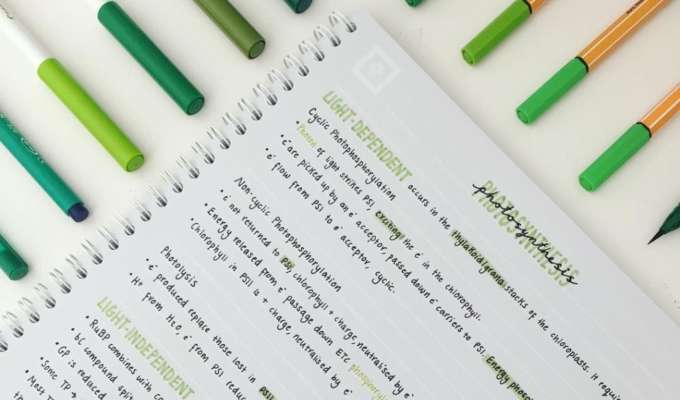 PHOTOSYNTHESIS
photosynthesis
LIGHT-DEPENDENT occurs in the thylakoid/grana stacks of the chloroplasts. It requi
Cyclic Photophosphorylation
• Photon of light strikes PSI exciting the e⁻ in the chlorophyll.
• e⁻ are picked up by an e⁻ acceptor, passed down e⁻ carriers to PSI. Energy phosp
• e⁻ flow from PSI to e⁻ acceptor, cyclic.
Non cyclic Photophosphorylation
• e⁻ not returned to PSI, chlorophyll + charge, neutralised by e⁻
• Energy released from e⁻ passage down ETC phosphory
• Chlorophyll in PSII is + charge, neutralised by e⁻
Photolysis
• e⁻ produced replace those lost in PSII
• H+ from H₂O, e⁻ from PSI reduc
LIGHT-INDEPENDENT
• RuBP combines with
• 6C compound split
• GP is reduced
• Some TP →
• Most